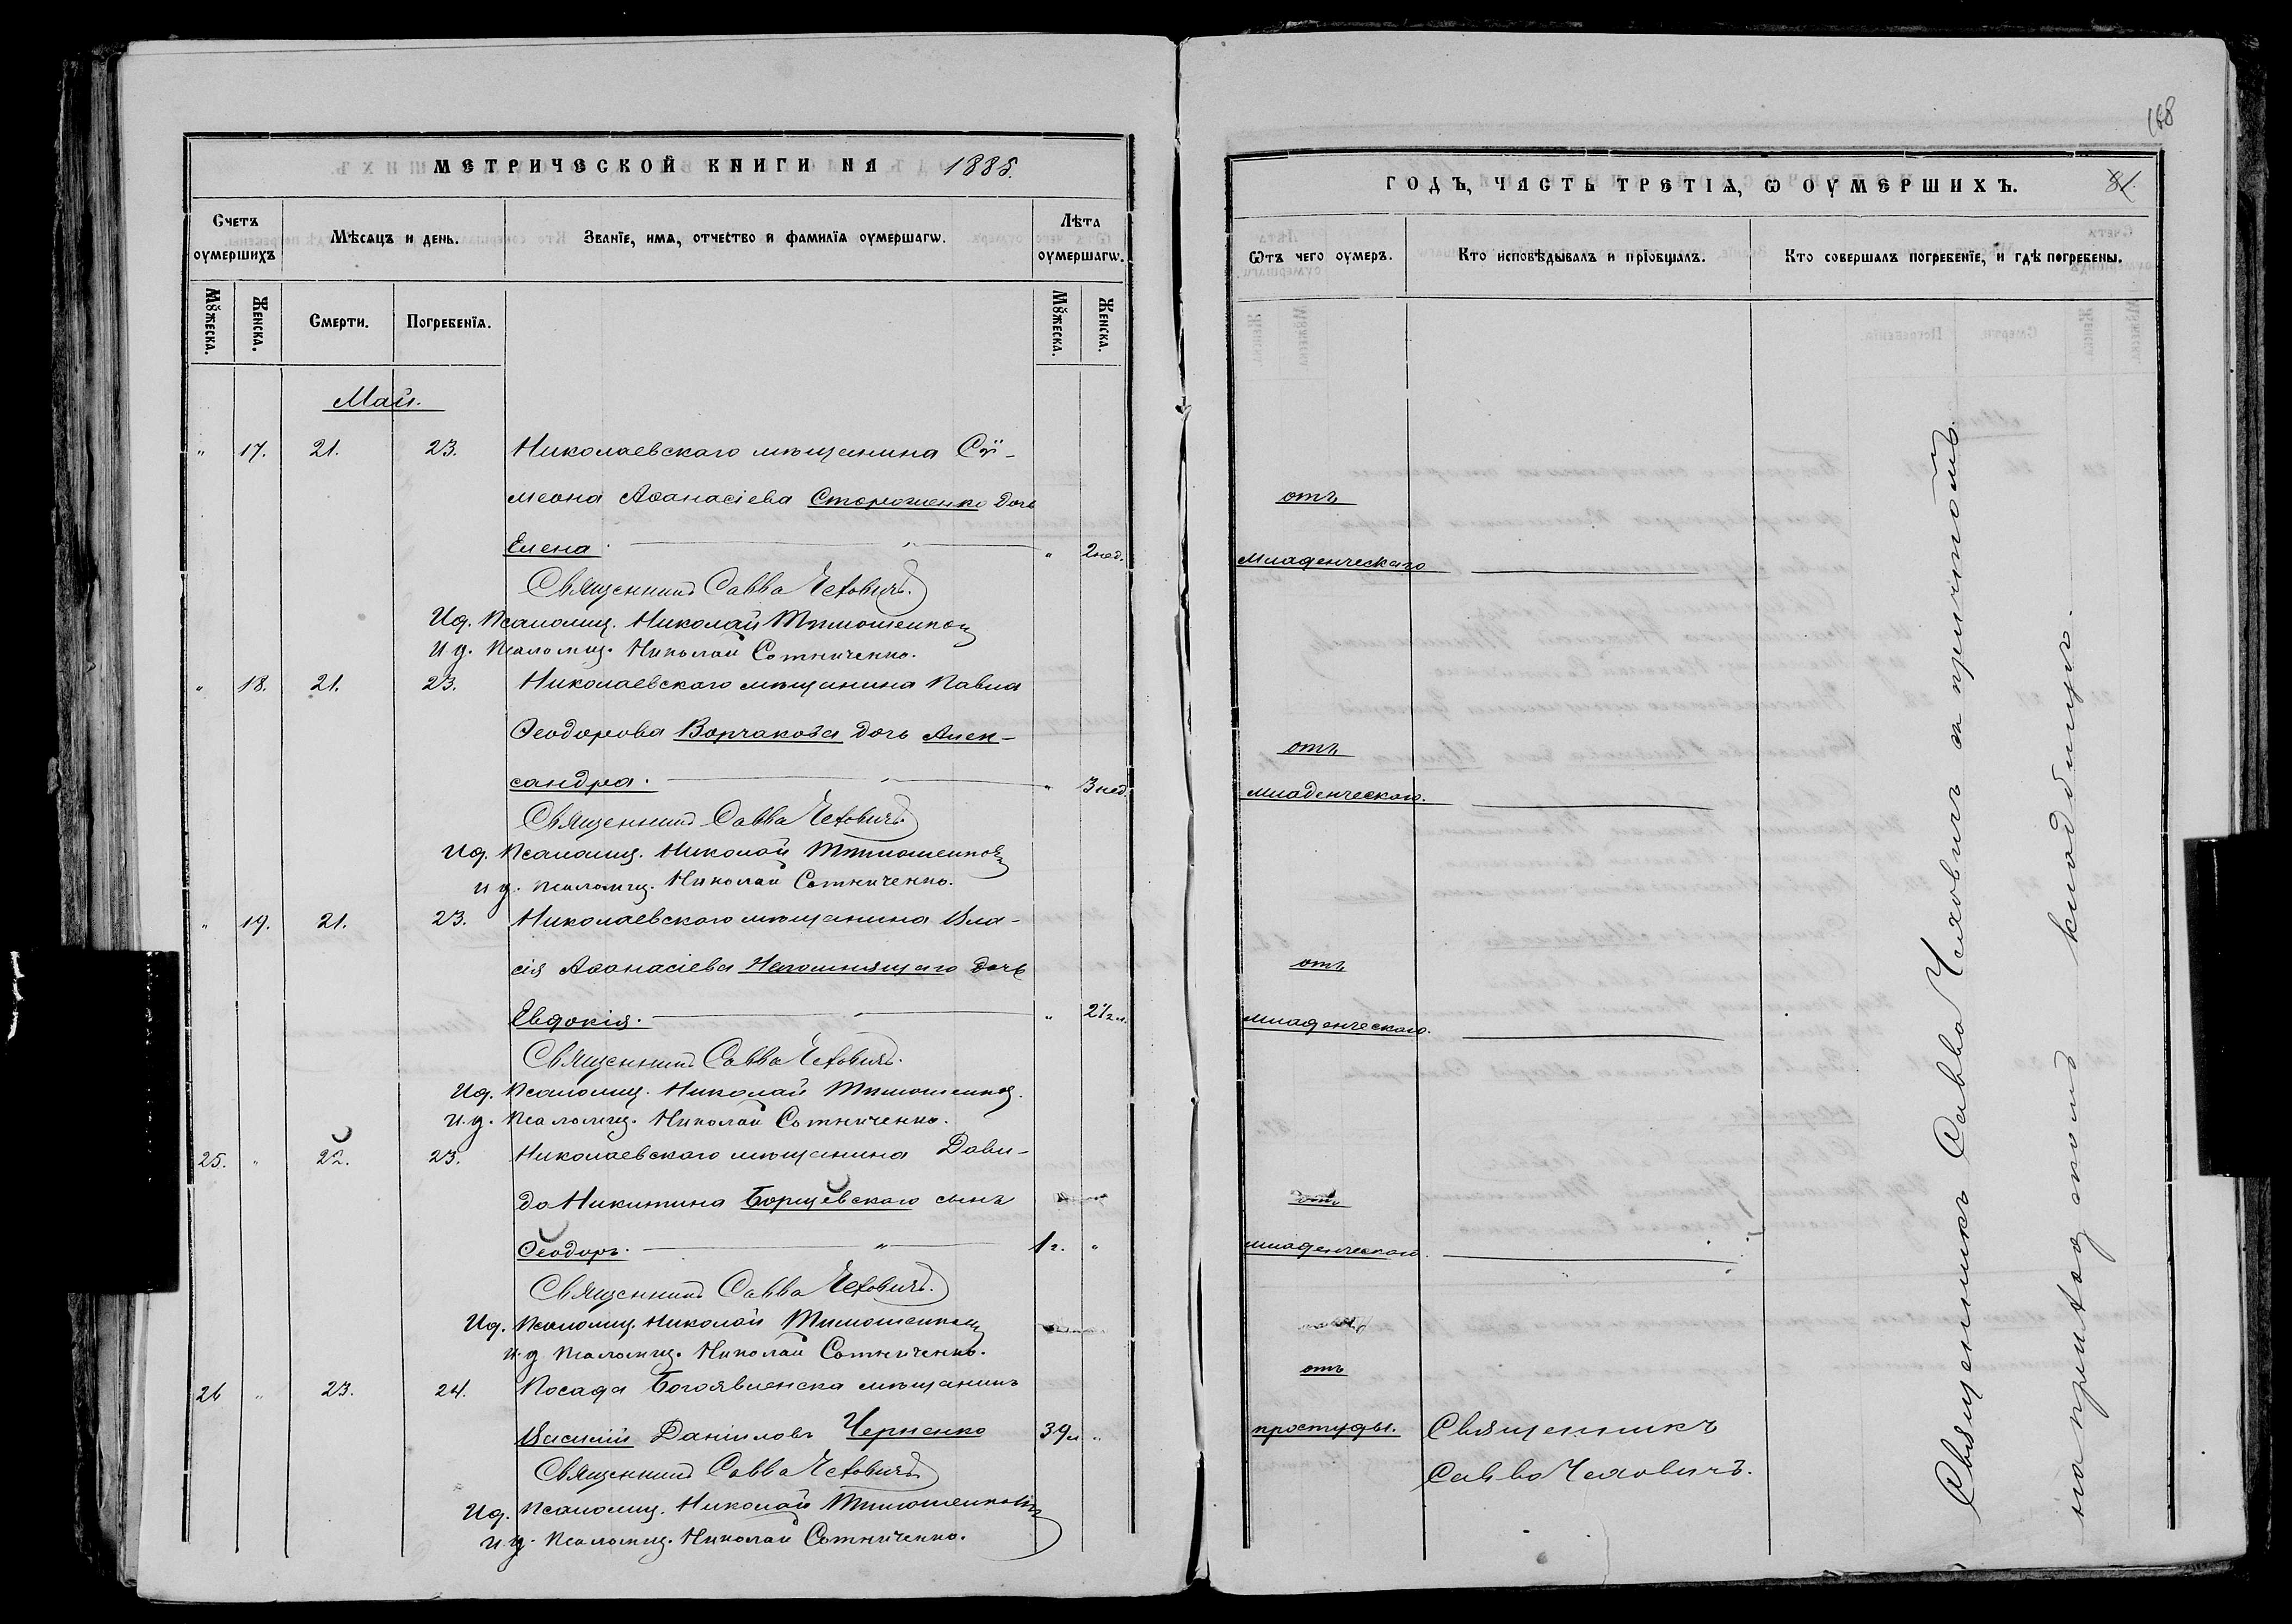 МЕТРИЧЕСКОЙ КНИГИ НА 1885.
Счетъ оумершихъ
Мѣсяцъ и день.
Званїе, имя, отчество и фамилїя оумершагѡ.
Лѣта оумершагѡ.
Мꙋжеска.
Женска.
Смерти.
Погребенїя.
Мꙋжеска.
Женска.
Май.
" 17. 21. 23. Николаевскаго мѣщанина Сѷ-
меона Аѳанасіева Стороженко дочь
Елена. " " 2 нед.
Священникъ Савва Чеховичъ.
И д. Псаломщ. Николай Тимошевскій
и д. Псаломщ. Николай Сотниченко.
" 18. 21. 23. Николаевскаго мѣщанина Павла
Ѳеодорова Ворчакова дочь Алек-
сандра. " " 3 нед.
Священникъ Савва Чеховичъ.
И д. Псаломщ. Николай Тимошевскій
и д. Псаломщ. Николай Сотниченко.
" 19. 21. 23. Николаевскаго мѣщанина Вла-
сія Аѳанасіева Непомнящаго дочь
Евдокія. " 2½ л.
Священникъ Савва Чеховичъ.
И д. Псаломщ. Николай Тимошевскій
и. д. Псаломщ. Николай Сотниченко.
25. " 22. 23. Николаевскаго мѣщанина Дави-
да Никитина Борщевскаго сынъ
Ѳеодоръ. " 1 г. "
Священникъ Савва Чеховичъ.
И д. Псаломщ. Николай Тимошевскій
и. д Псаломщ. Николай Сотниченко.
26 " 23. 24. Посада Богоявленска мѣщанинъ
Василій Даніиловъ Черненко 39 л "
Священникъ Савва Чеховичъ
И д. Псаломщ. Николай Тимошевскій
и д. Псаломщ. Николай Сотниченко.
168
ГОДЪ, ЧАСТЬ ТРЕТІѦ, Ѡ ОУМЕРШИХЪ. 81.
Ѿтъ чего оумеръ.
Кто исповѣдывалъ и прїобщалъ.
Кто совершалъ погребенїе, и гдѣ погребены.
отъ
младенческаго
отъ
младенческаго.
отъ
младенческаго.
отъ
младенческаго.
отъ
простуды. Священникъ
Савва Чеховичъ.
Священникъ Савва Чеховичъ съ причтомъ.
на приходскомъ кладбищѣ.